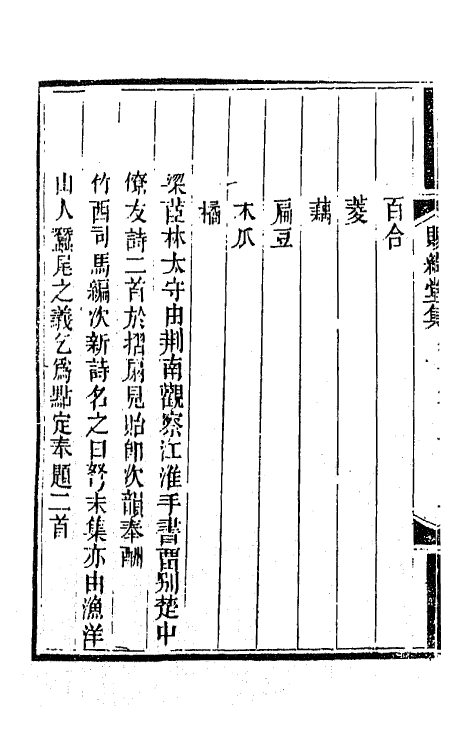 賜綺堂集
百合
菱
藕
扁豆
木瓜
橘
梁茝林太守由荆南觀察江淮手書畱别楚中
僚友詩二首於摺扇見貽卽次韻奉酬
竹西司馬編次新詩名之曰努末集亦由漁洋
山人蠶尾之義乞爲點定奉題二首